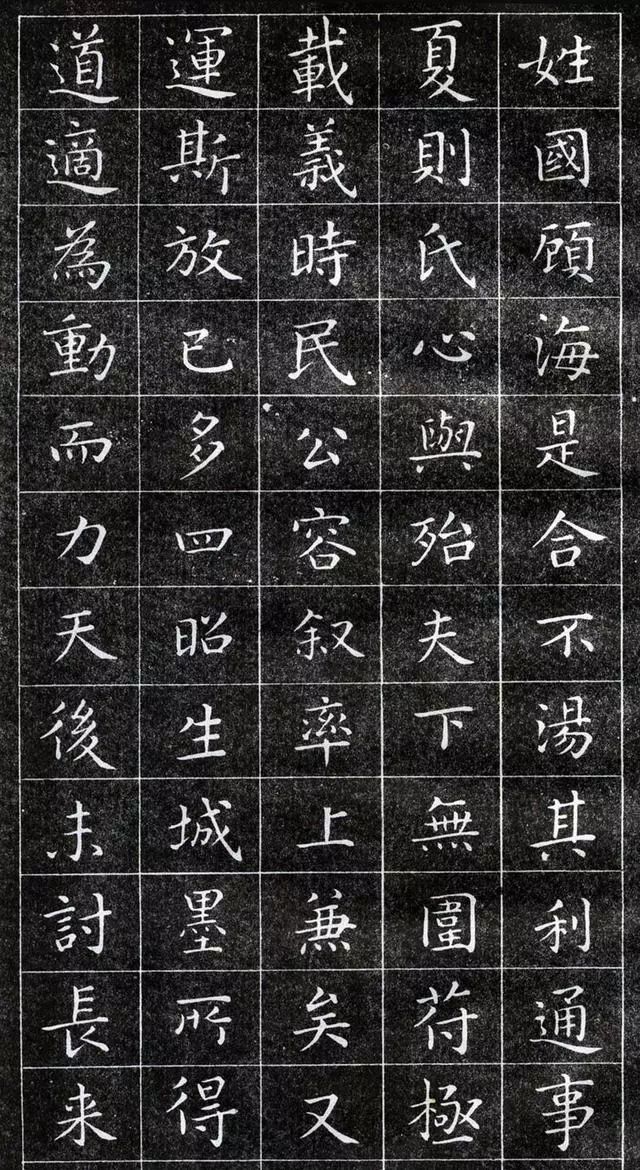 姓國頋海是合不湯其利通事
夏則氏心與殆夫下無圍苻極
載義時民公容叙率上兼矣又
運斯放已多四昭生城墨所得
道適為動而力天後未討長来